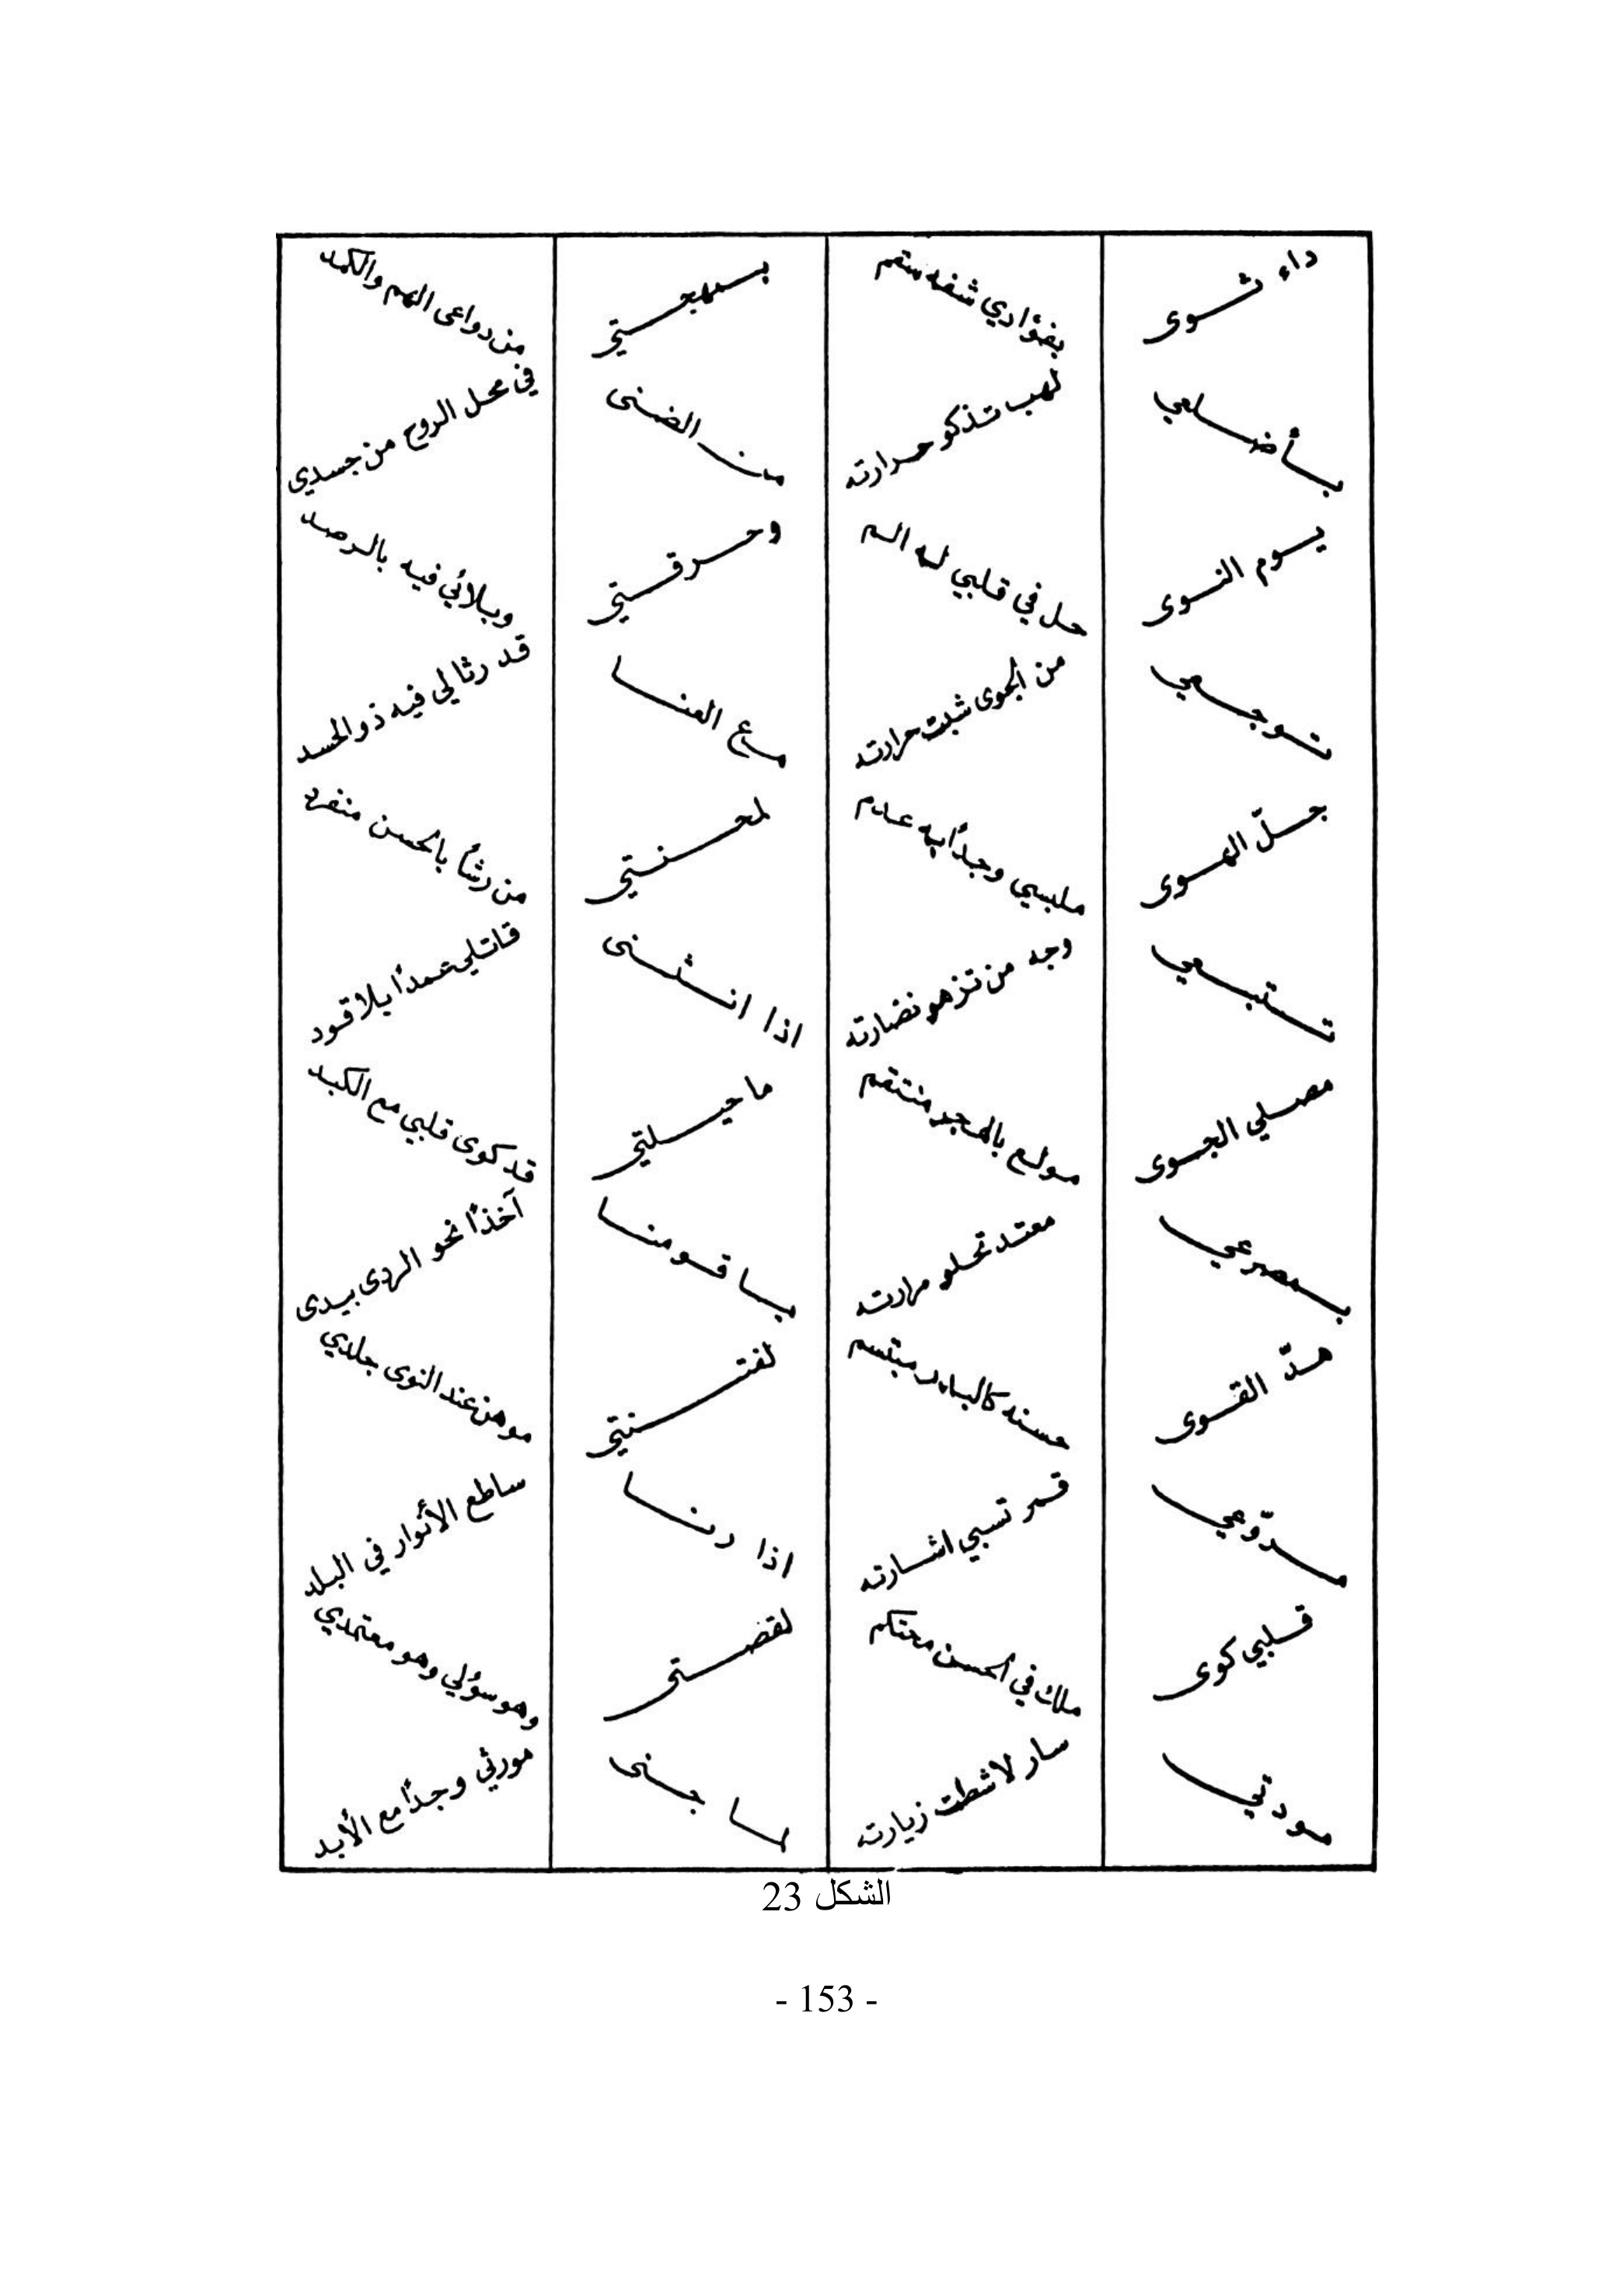 داء ثوى بفؤادي شفه سقم بمهجتي من دواعي الهم والكمد
بأضلعي لهب تذكو حرارته من الضنى في محل الروح من جسدي
يوم النوى حل في قلبي له الم وحرقتي وبلائي فيه بالرصد
توجعي من الجوى شبت حرارته مع العنا قد رثا لي فيه ذو الحسد
جلّ الهوى ملبسي وجدًا به عدم لمحنتي من رشأ بالحسن منفرد
تتبعي وجه من تزهو نضارته اذا انثنى قاتلي عمدًا بلا قود
مصلي الجوى مولع بالهجر منتقم ما حيلتي قد كوى قلبي مع الكبد
بمصرعي معتد تحلو مرارته يا قومنا آخذًا نحو الردى بيدي
هدّ القوى حسنه كالبدر مبتسم لفتنتي موهن عند النوى جلدي
مروّعي قمر تسبي اشارته اذا رنا ساطع الأنوار في البلد
قلبي كوى ملك في الحسن محتكم لقصتي وهو سؤلي وهو معتمدي
مودتي سار لا شطت زيارته لما جنى مورثي وجدًا مع الأبد
الشكل 23
- 153 -